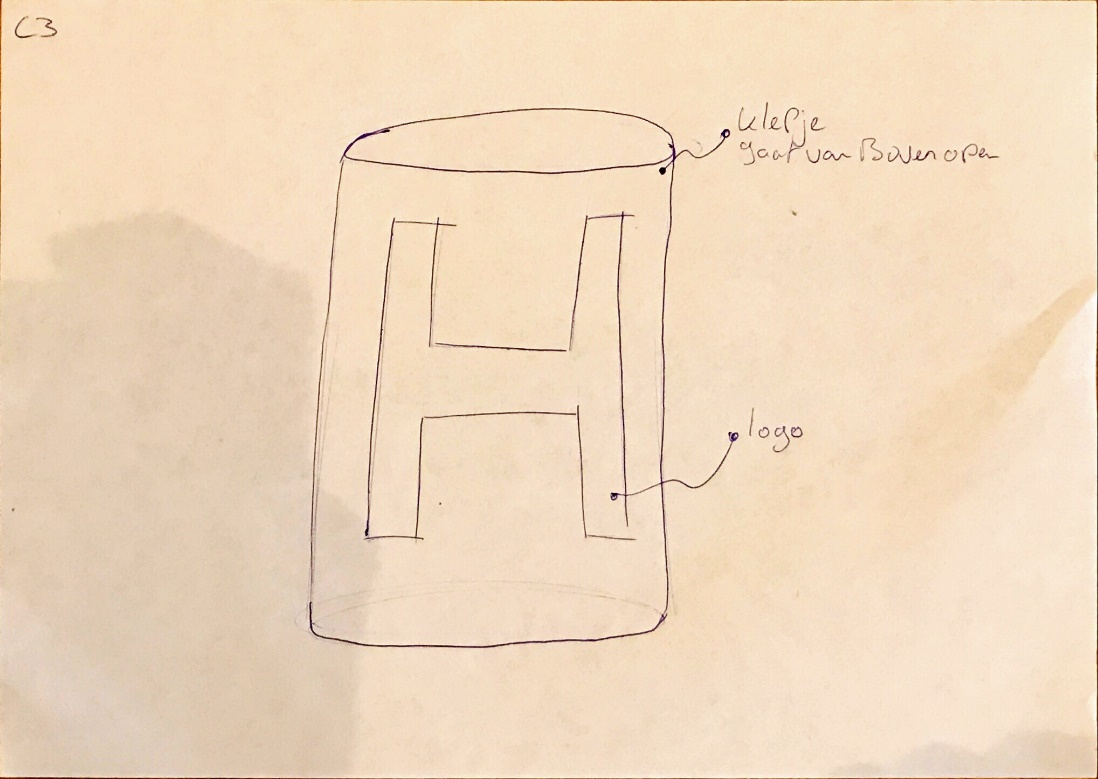 C3
klepje
gaat van Boven open
H
logo